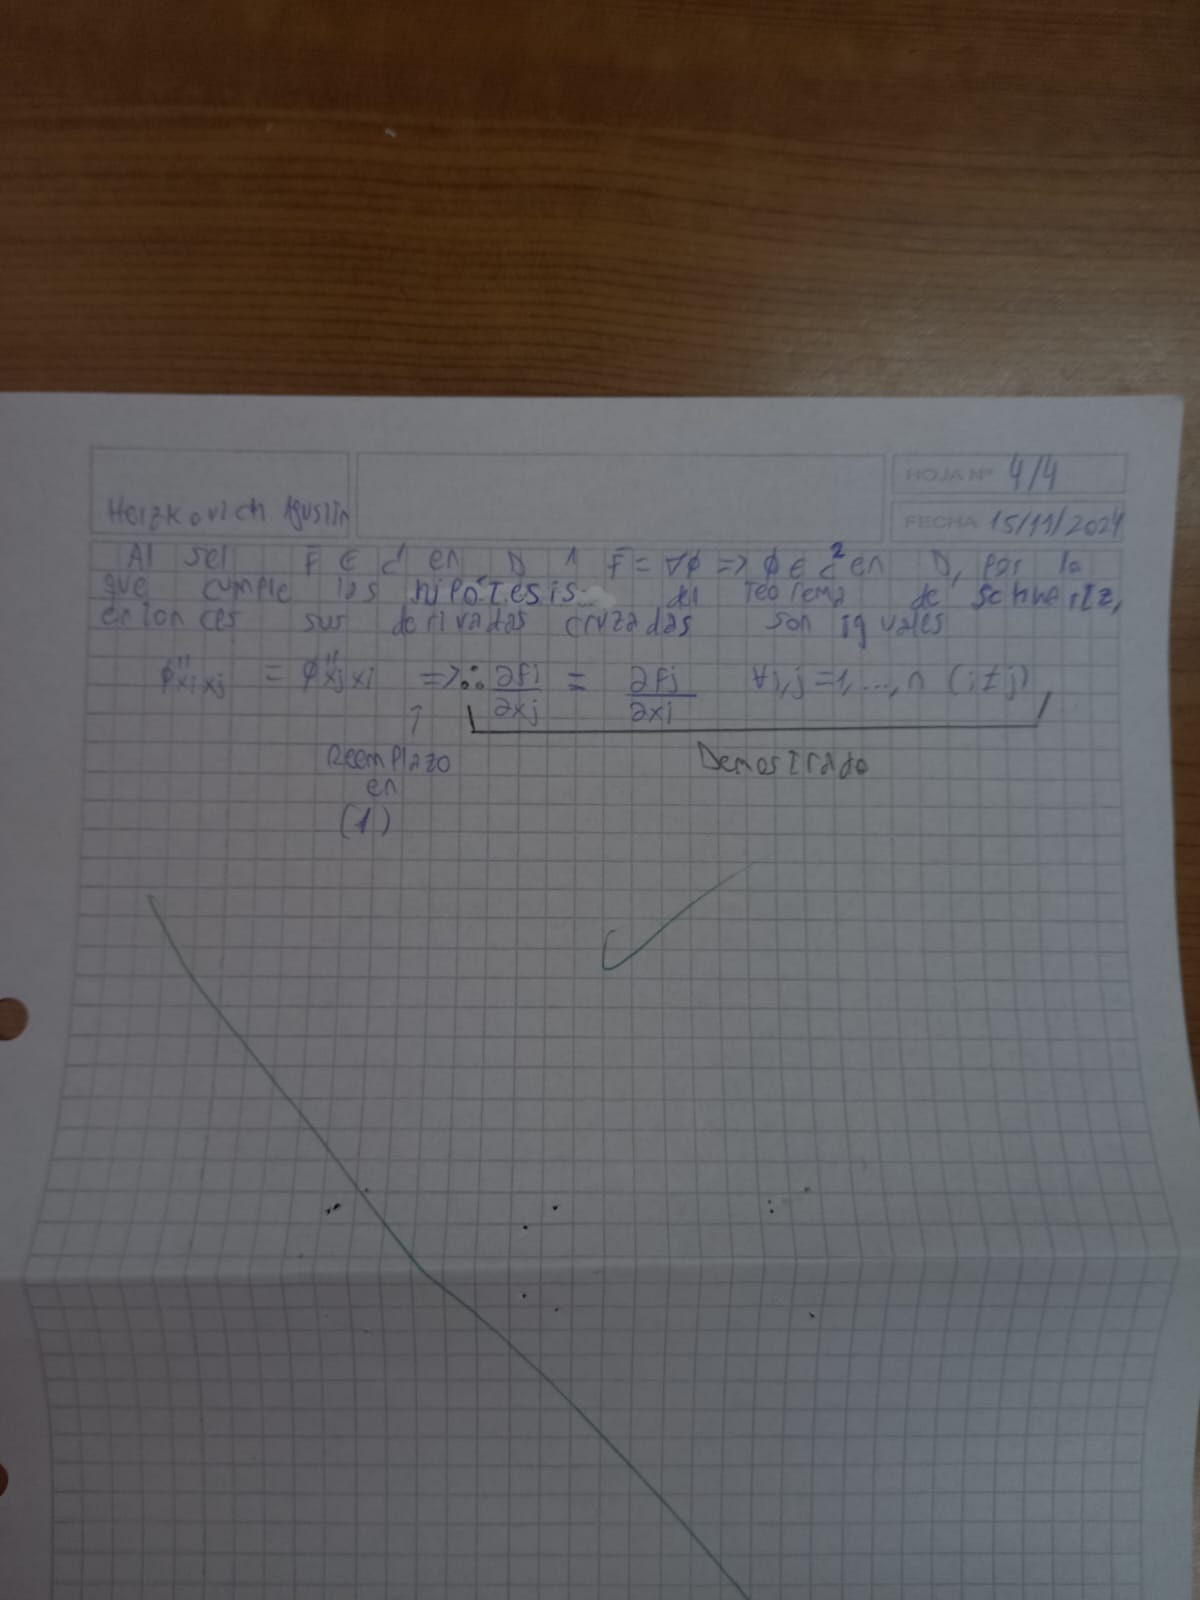 HOJA Nº 4/4
Herzkovich Agustín
FECHA 15/11/2024
Al ser F̄ ∈ C¹ en D ∧ F̄ = ∇φ => φ ∈ C² en D, por lo
que cumple las hipótesis del Teorema de Schwartz,
entonces sus derivadas cruzadas son iguales
φ''xixj = φ''xjxi => ∴ ∂fi/∂xj = ∂fj/∂xi ∀i,j = 1,...,n (i≠j)
↑
Reemplazo Demostrado
en
(1)